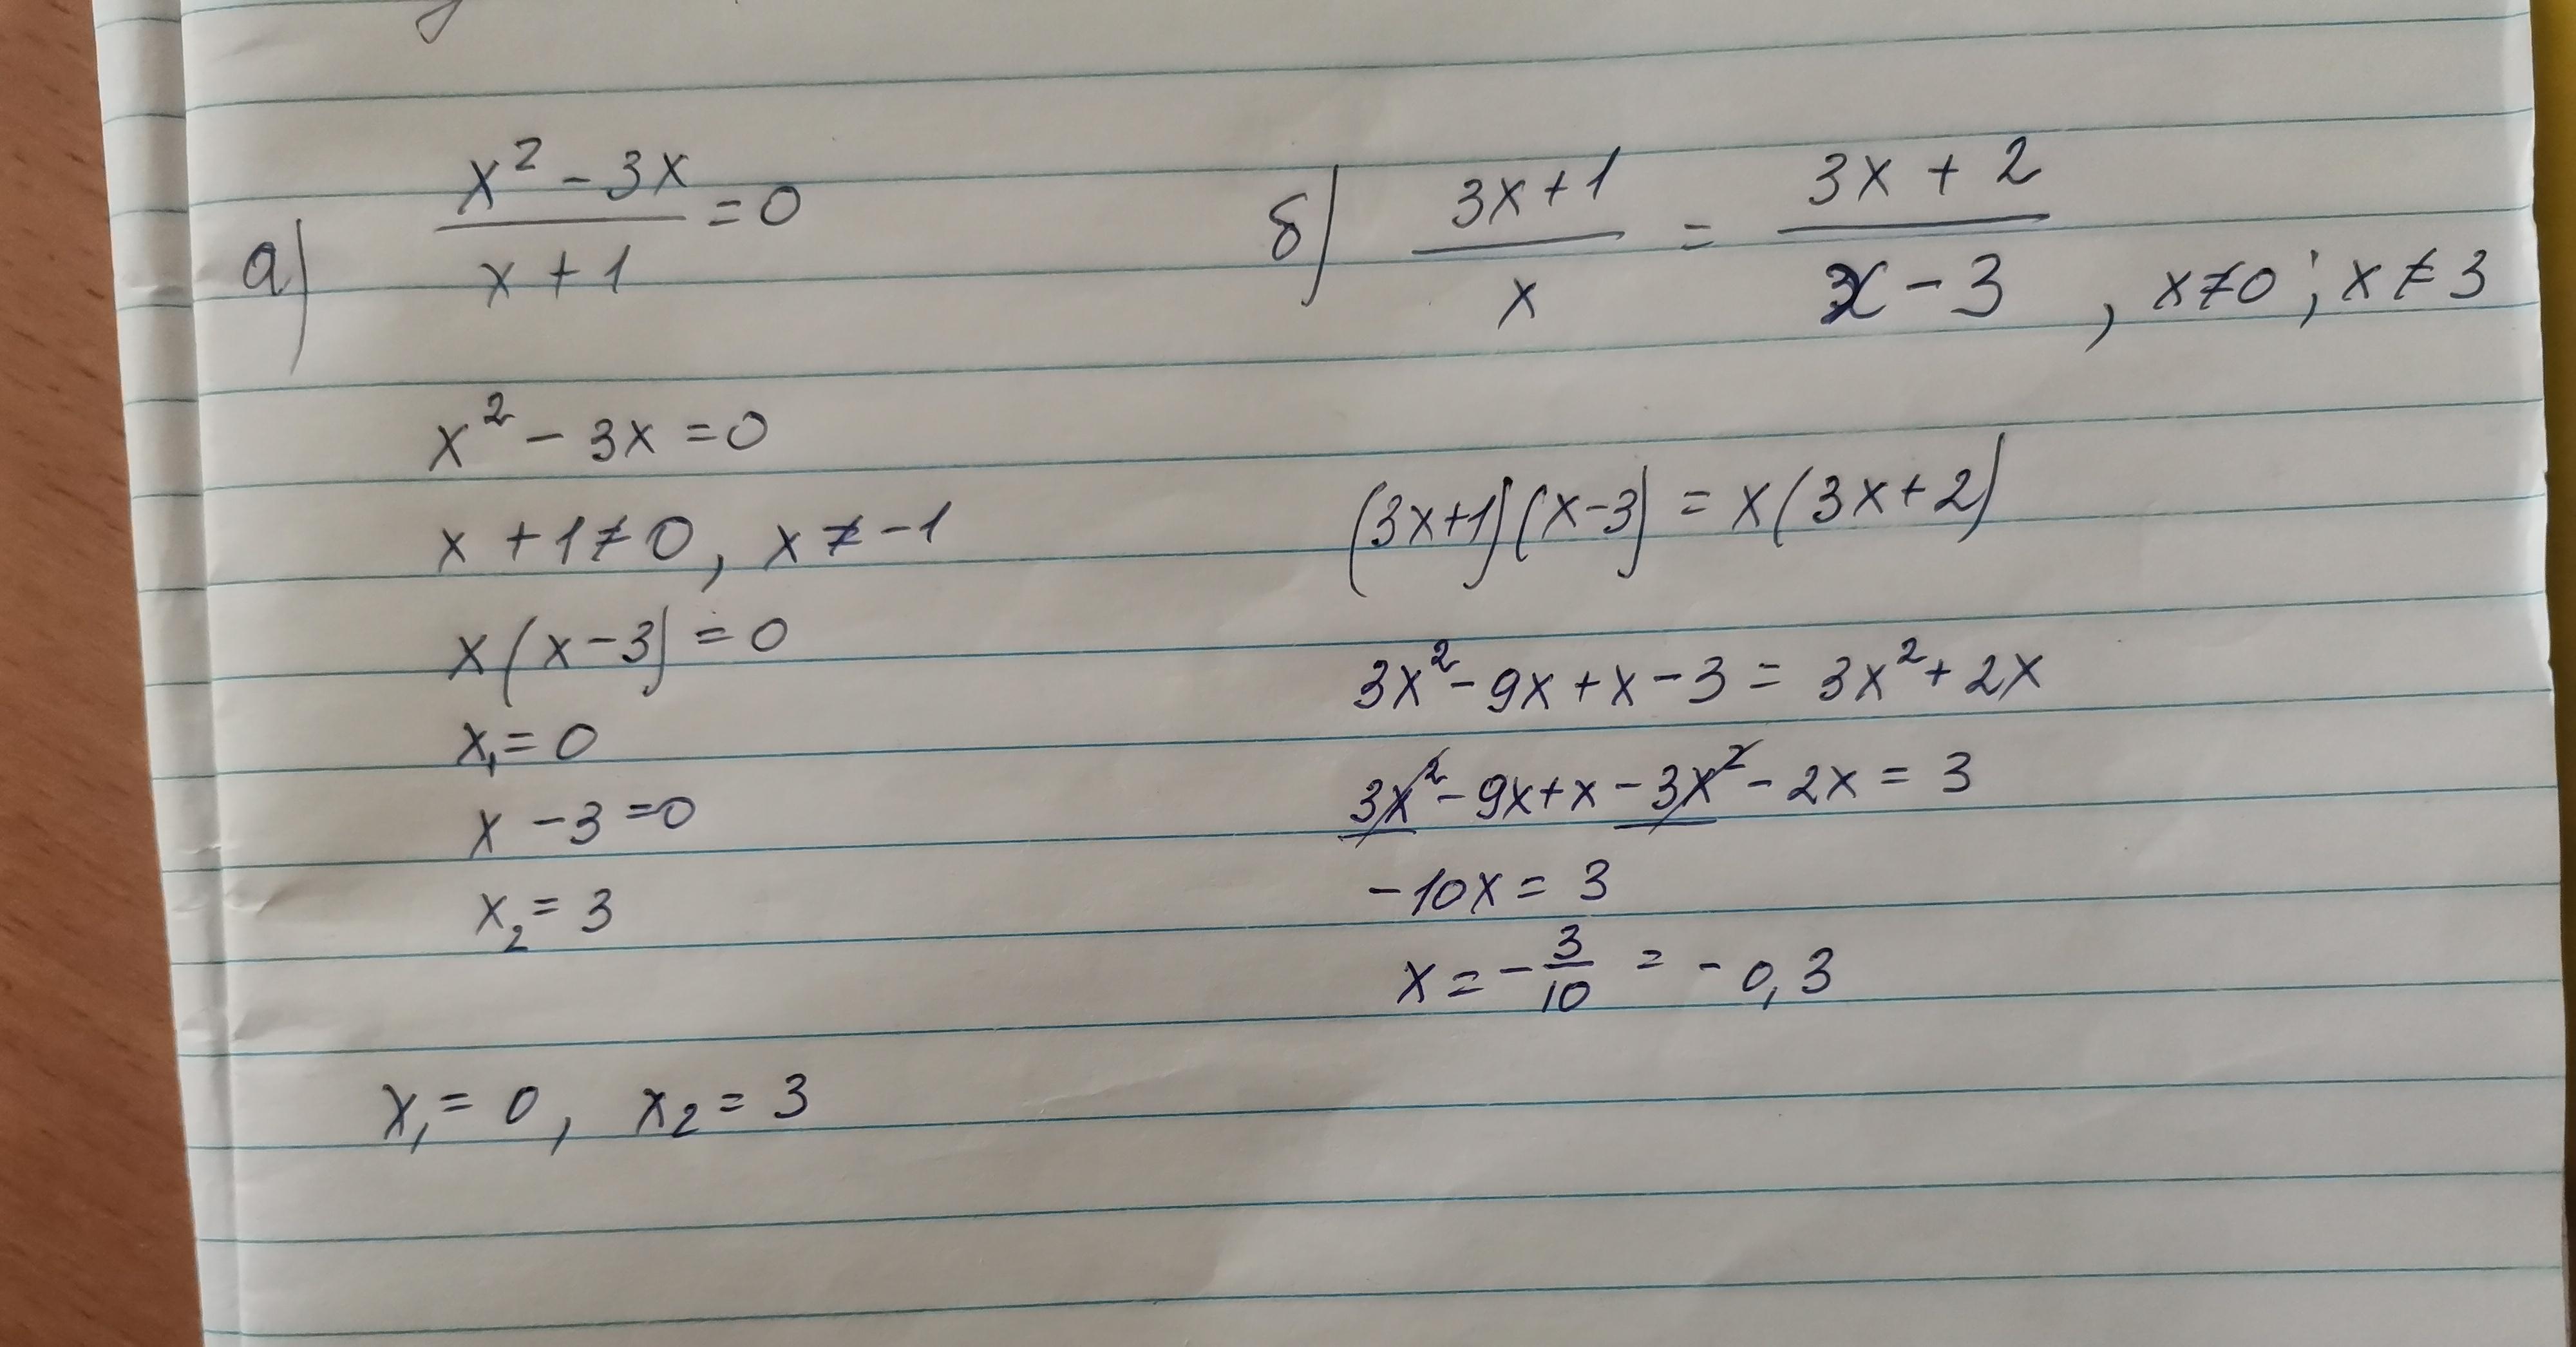 а) (x² - 3x)/(x + 1) = 0
x² - 3x = 0
x + 1 ≠ 0, x ≠ -1
x(x-3) = 0
x₁ = 0
x - 3 = 0
x₂ = 3
x₁ = 0, x₂ = 3
б) (3x+1)/x = (3x + 2)/(x - 3), x ≠ 0; x ≠ 3
(3x+1)(x-3) = x(3x+2)
3x² - 9x + x - 3 = 3x² + 2x
3x² - 9x + x - 3x² - 2x = 3
-10x = 3
x = -3/10 = -0,3